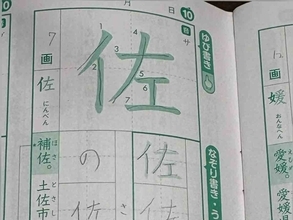 月 日 10
ゆび書き
音 サ
佐
1 2 3 4 5 6 7
なぞり書き・う
佐
の
佐
佐
7画
佐
にんべん
補佐。
ほさ
土佐市
とさ
画
媛
おんなへん
愛媛。
えひめ
愛媛